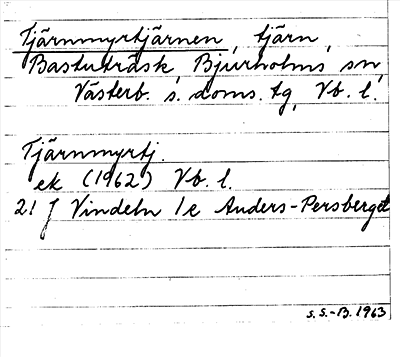 Tjärnmyrtjärnen, tjärn,
Bastuträsk, Bjurholms sn,
Västerb. s. doms. tg, Vb. l.
Tjärnmyrtj.
ek (1962) Vb. l.
21 J Vindeln 1e Anders-Persberget
S.S.-B. 1963